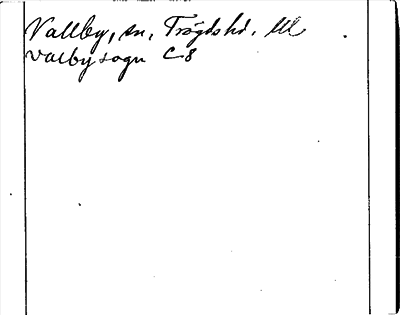 Vallby, sn, Trögds hd, Ul
valby sogn C 8